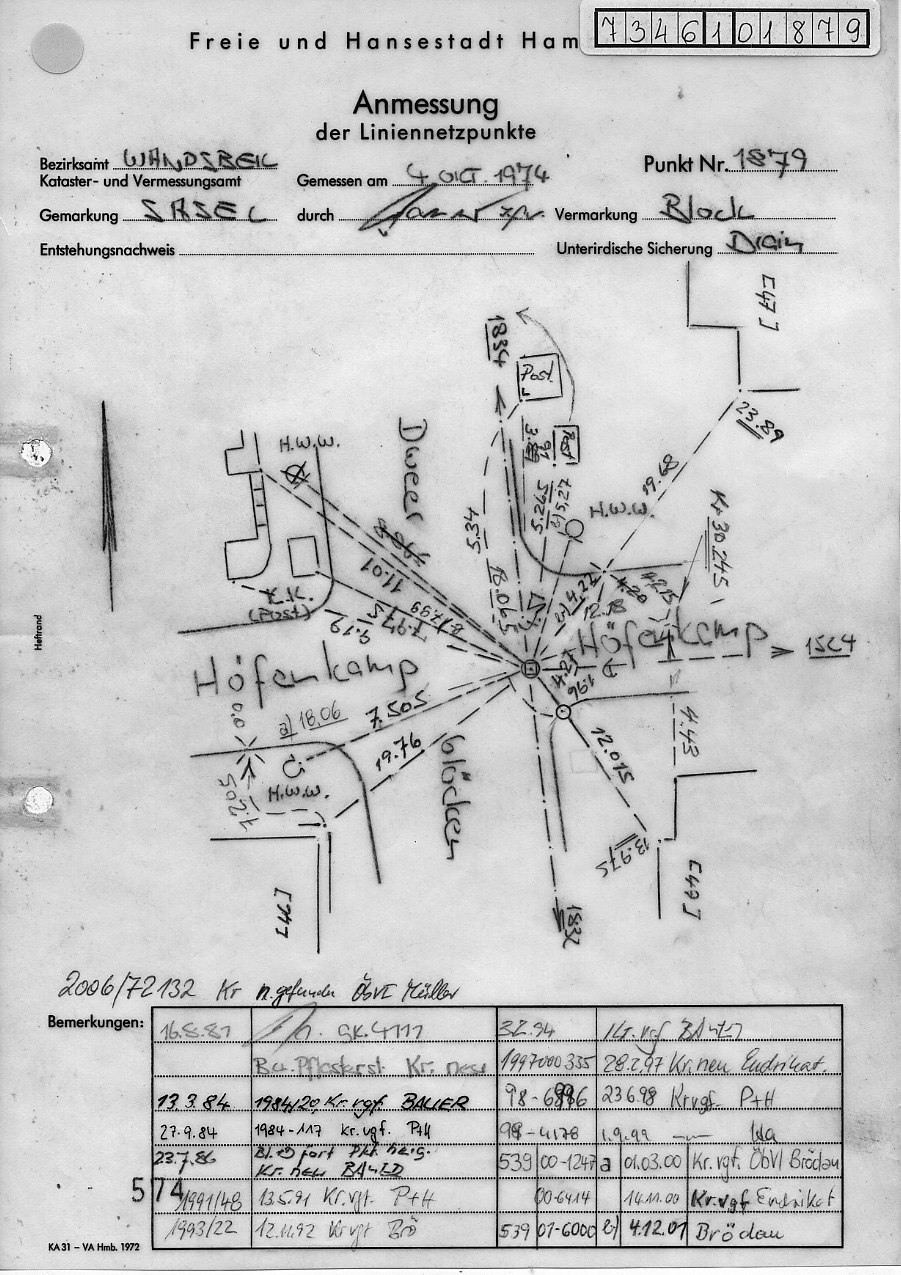 Freie und Hansestadt Ham
7346101879
Anmessung
der Liniennetzpunkte
Bezirksamt WANDSBEK
Kataster- und Vermessungsamt
Gemessen am 4. OKT. 1974
Punkt Nr. 1879
Gemarkung SASEL
durch
Vermarkung Block
Entstehungsnachweis
Unterirdische Sicherung Drain
[47]
1834
Post
23.89
H.W.W.
Dweer
3.89
Post
19.68
5.265
5.27
H.W.W.
Kr 30.245
5.34
11.01
18.065
4.22
4.20
4.225
12.18
(Post)
7.975
9.19
Höfenkamp
1564
Höfenkamp
4.27
1.96
0.0
a) 18.06
7.505
12.015
4.43
19.76
Glocken
H.W.W.
7.205
13.975
[49]
1832
2006/72132 Kr n. gefunden ÖbVI Müller
Bemerkungen:
16.8.81 GK.4111
3.2.94 Kr. vgf BAULD
Bu. Pflasterst. Kr. neu
1997000335 28.2.97 Kr. neu Endrikat
13.3.84 1984/20, Kr. vgf. BAUER
98-6896 23.6.98 Kr vgf. P+H
27.9.84 1984-117 Kr. vgf. P+H
99-4178 1.9.99
23.7.86 Bl. fort Pkt.
Kr. neu BAULD
539 00-1247 a 01.03.00 Kr. vgf. ÖbVI Brödau
574
1991/48 13.5.91 Kr. vgf. P+H
00-6414 14.11.00 Kr. vgf Endrikat
1993/22 12.11.92 Kr vgf Brö
539 01-6000 b) 4.12.01 Brödau
Heftrand
KA 31 – VA Hmb. 1972